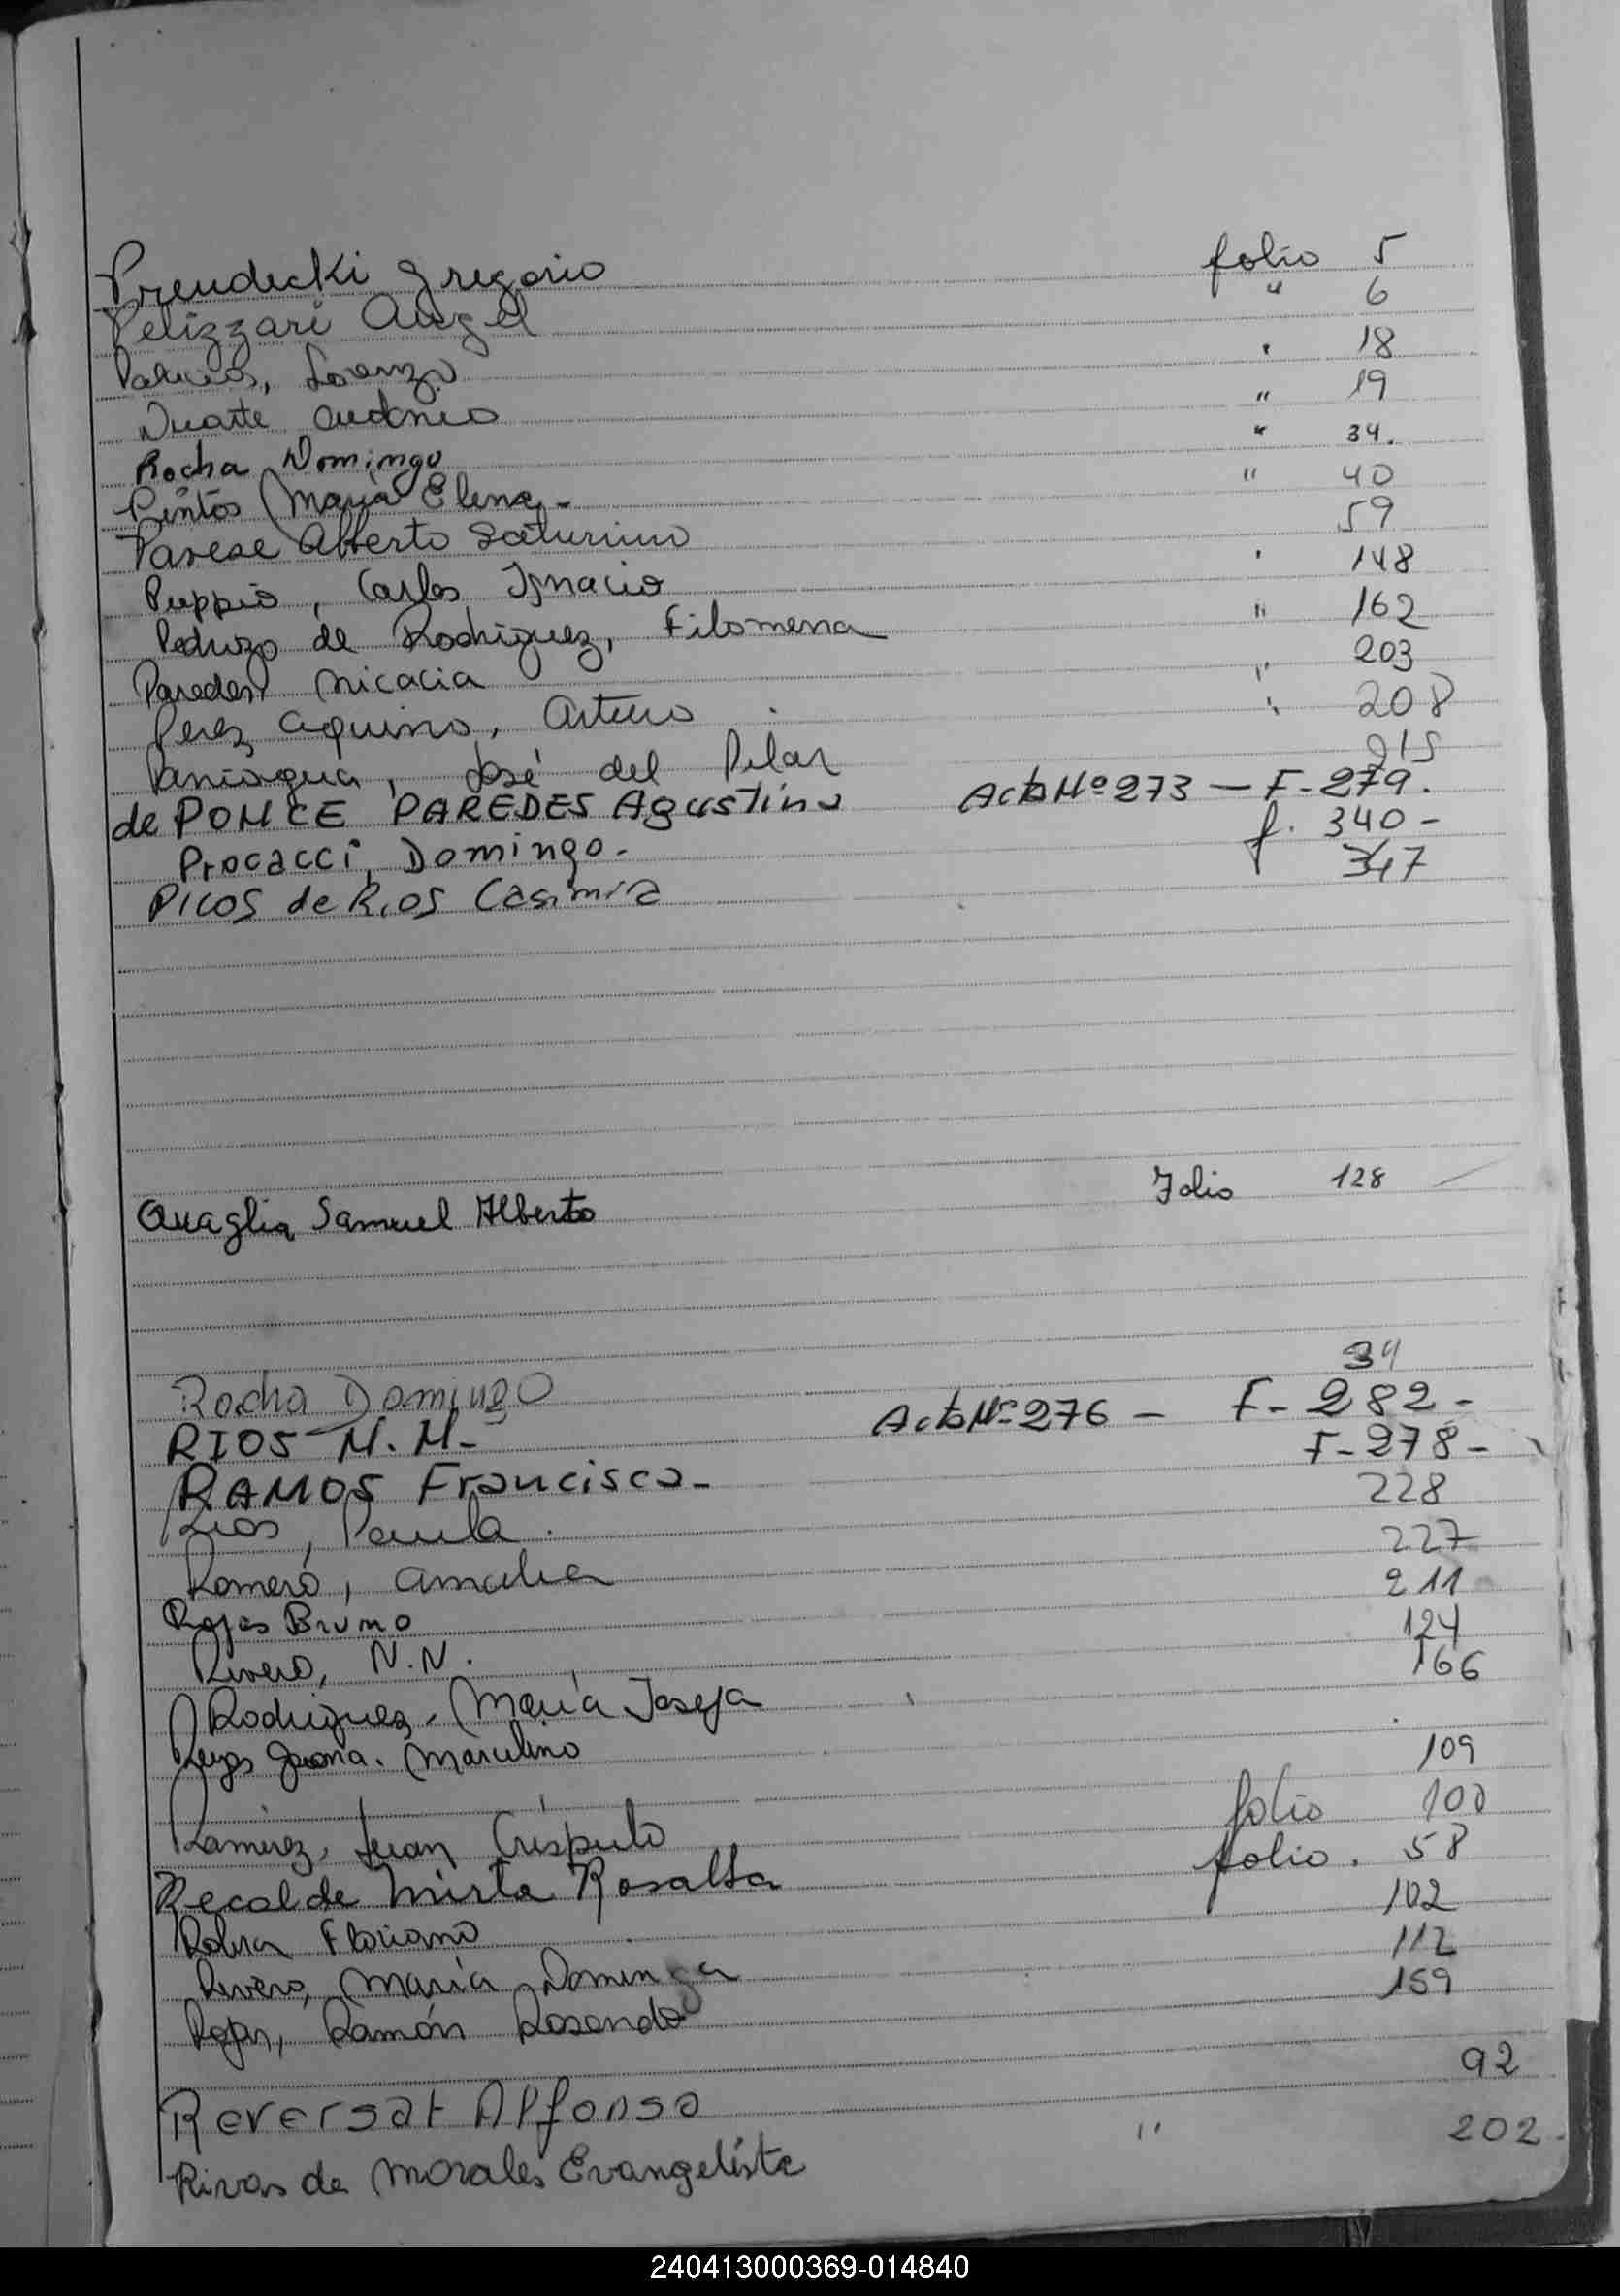 Prendecki Gregorio folio 5
Pelizzari Angel " 6
Palacios, Lorenzo " 18
Duarte Antonio " 19
Rocha Domingo " 34.
Pintos Maria Elena - " 40
Parese Alberto Saturnino 59
Puppio, Carlos Ignacio " 148
Pedrozo de Rodriguez, Filomena " 162
Paredes Nicacia " 203
Perez Aquino, Arturo " 208
Paniagua, José del Pilar 215
de PONCE PAREDES Agustina Acta Nº 273 - F-279.
Procacci, Domingo - f. 340 -
PICOS de RIOS Casimira 347
Quaglia Samuel Alberto Folio 128
Rocha Domingo 34
RIOS N.N. - Acta Nº 276 - F-282-
RAMOS Francisca - F-278-
Rios, Paula 228
Romero, Amalia 227
Rojas Bruno 211
Rivero, N.N. 124
Rodriguez, María Josefa 166
Marcelino
Ramirez, Juan Críspulo 109
Recalde Mirta Rosalba folio 100
Floriano folio. 58
Rivero, María Dominga 102
Rojas, Ramón Rosendo 112
159
Reversat Alfonso 92
Rivas de Morales Evangelista " 202.
240413000369-014840